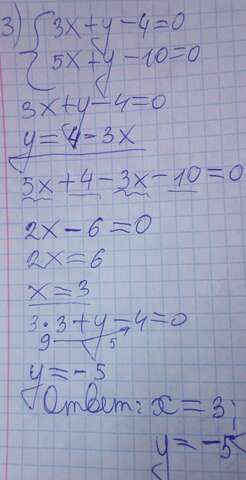 3) { 3x+y-4=0
5x+y-10=0
3x+y-4=0
y=4-3x
5x+4-3x-10=0
2x-6=0
2x=6
x=3
3·3+y-4=0
9 5
y=-5
Ответ: x=3;
y=-5